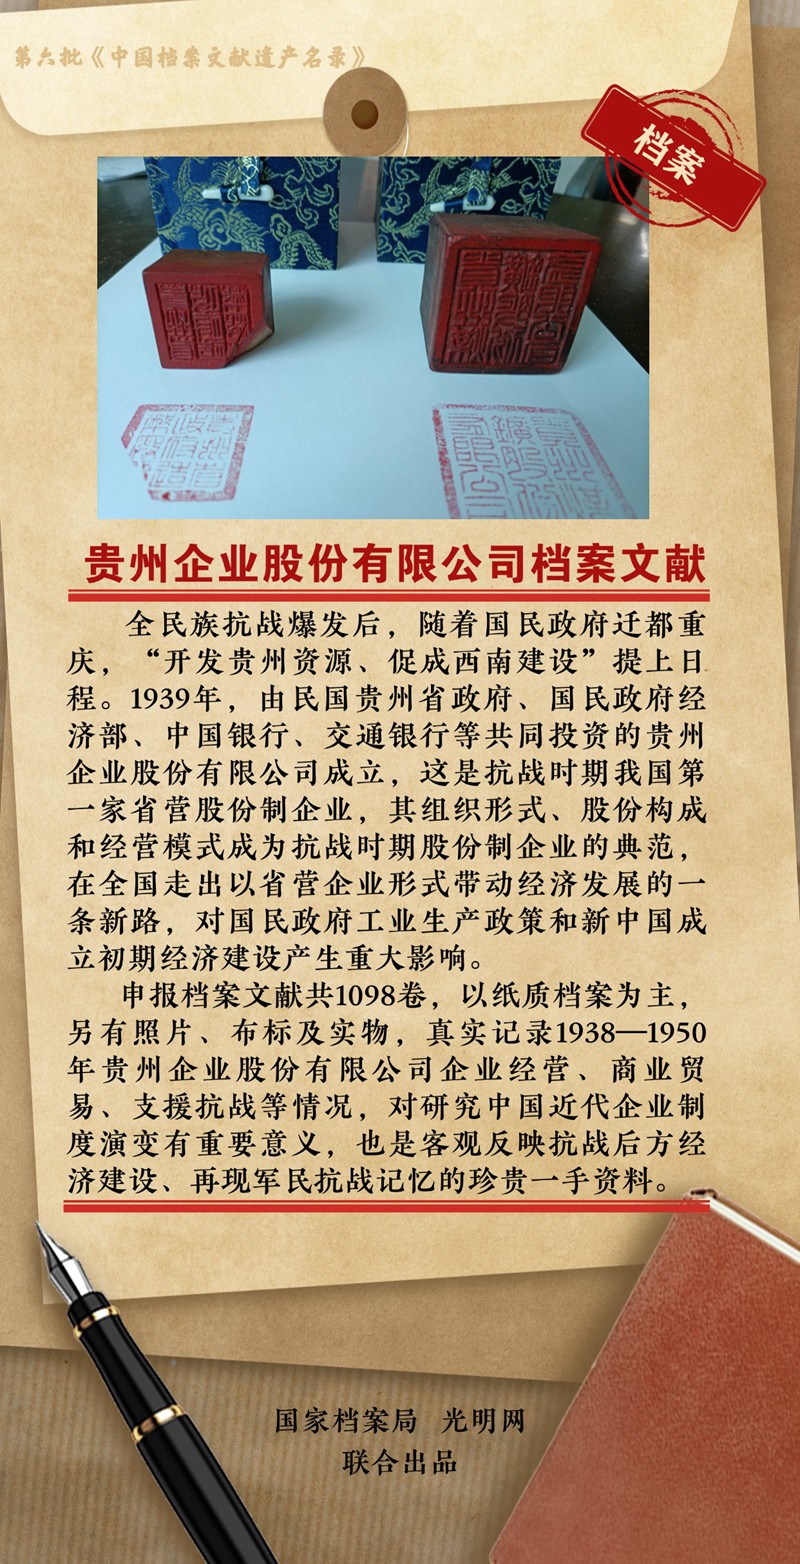 第六批《中国档案文献遗产名录》
档案
贵州企业股份有限公司档案文献
全民族抗战爆发后，随着国民政府迁都重
庆，“开发贵州资源、促成西南建设”提上日
程。1939年，由民国贵州省政府、国民政府经
济部、中国银行、交通银行等共同投资的贵州
企业股份有限公司成立，这是抗战时期我国第
一家省营股份制企业，其组织形式、股份构成
和经营模式成为抗战时期股份制企业的典范，
在全国走出以省营企业形式带动经济发展的一
条新路，对国民政府工业生产政策和新中国成
立初期经济建设产生重大影响。
申报档案文献共1098卷，以纸质档案为主，
另有照片、布标及实物，真实记录1938—1950
年贵州企业股份有限公司企业经营、商业贸
易、支援抗战等情况，对研究中国近代企业制
度演变有重要意义，也是客观反映抗战后方经
济建设、再现军民抗战记忆的珍贵一手资料。
国家档案局 光明网
联合出品